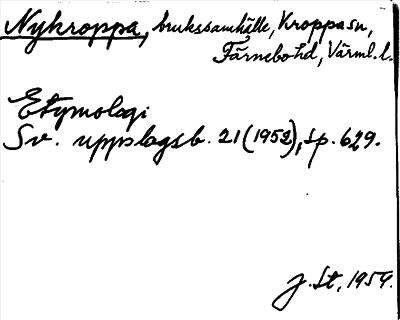 Nykroppa, brukssamhälle, Kroppa sn,
Färnebo hd, Värml. l.
Etymologi
Sv. uppslagsb. 21 (1952), sp. 629.
J. St, 1959.